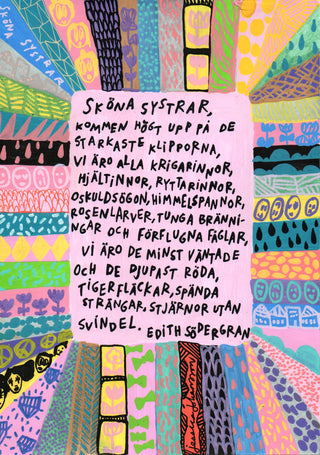 SKÖNA
SYSTRAR
SKÖNA SYSTRAR,
KOMMEN HÖGT UPP PÅ DE
STARKASTE KLIPPORNA,
VI ÄRO ALLA KRIGARINNOR,
HJÄLTINNOR, RYTTARINNOR,
OSKULDSÖGON, HIMMELSPANNOR,
ROSENLARVER, TUNGA BRÄNNI-
NGAR OCH FÖRFLUGNA FÅGLAR,
VI ÄRO DE MINST VÄNTADE
OCH DE DJUPAST RÖDA,
TIGERFLÄCKAR, SPÄNDA
STRÄNGAR, STJÄRNOR UTAN
SVINDEL. EDITH SÖDERGRAN